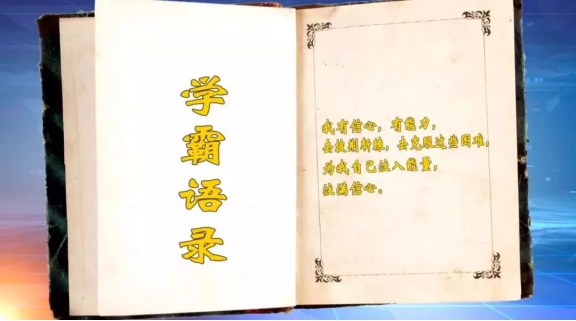 学霸语录
我有信心，有能力，
去披荆斩棘，去克服这些困难，
为我自己注入能量，
注满信心。